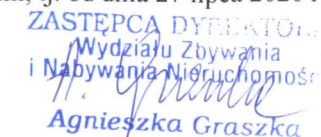 od dnia 27 lipca 2020 r
ZASTĘPCA DYREKTO
Wydziału Zbywania
i Nabywania Nieruchomości
Agnieszka Graszka